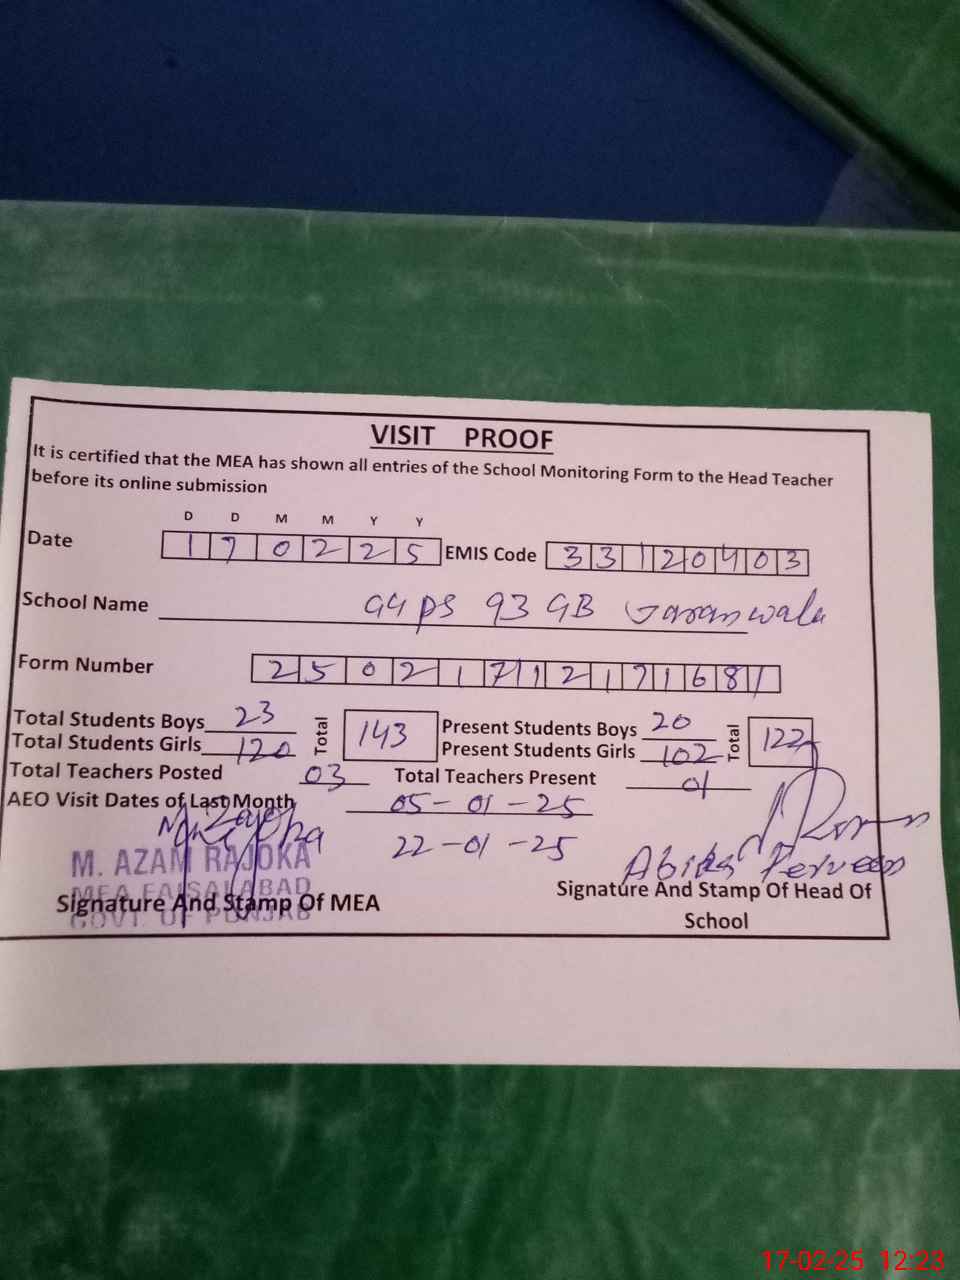 VISIT PROOF
It is certified that the MEA has shown all entries of the School Monitoring Form to the Head Teacher
before its online submission
D D M M Y Y
Date 1 7 0 2 2 5 EMIS Code 3 3 1 2 0 4 0 3
School Name GGPS 93 GB Garanwala
Form Number 2 5 0 2 1 7 1 2 1 7 1 6 8 1
Total Students Boys 23 Total 143 Present Students Boys 20 Total 122
Total Students Girls 120 Present Students Girls 102
Total Teachers Posted 03 Total Teachers Present 01
AEO Visit Dates of Last Month 05-01-25
22-01-25
M. AZAM RAJOKA Abida Perveen
MEA FAISALABAD
Signature And Stamp Of MEA Signature And Stamp Of Head Of
GOVT. OF PUNJAB School
17-02-25 12:23